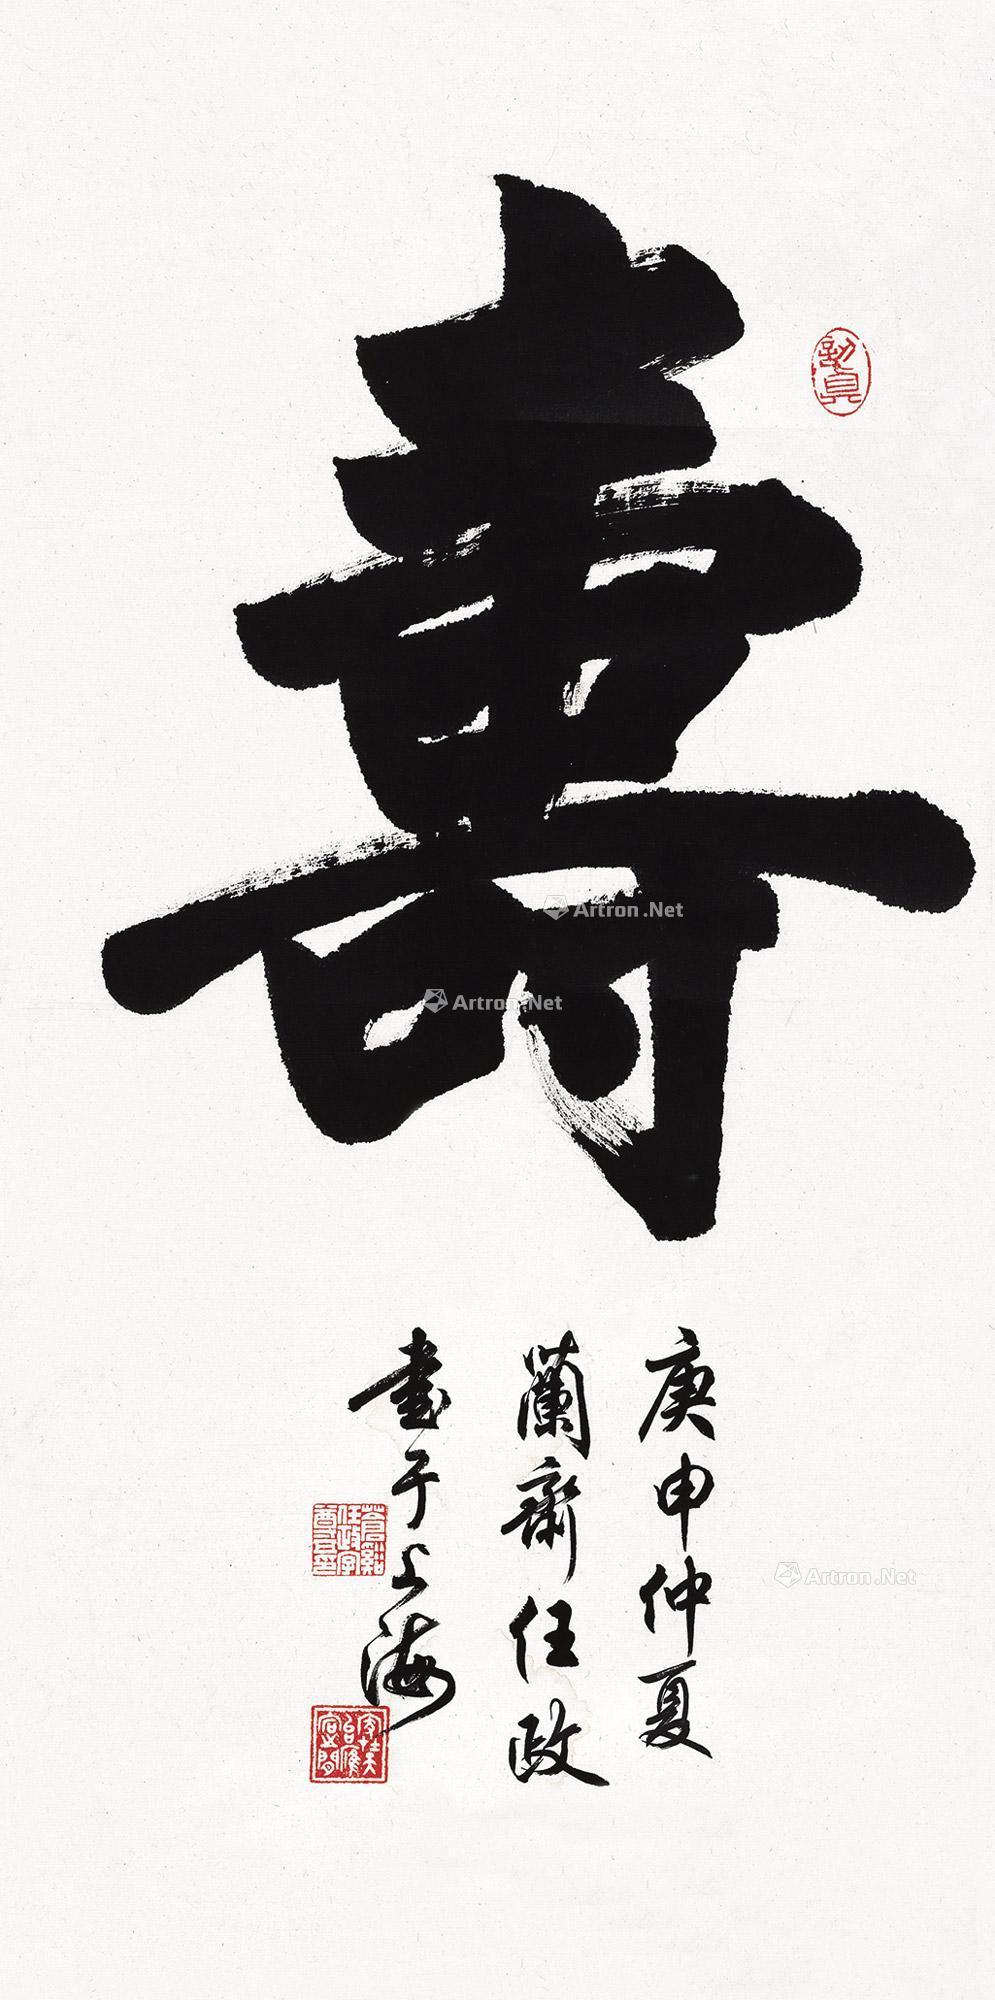 壽
庚申仲夏
蘭齋任政
書于上海
Artron.Net
Artron.Net
Artron.Net